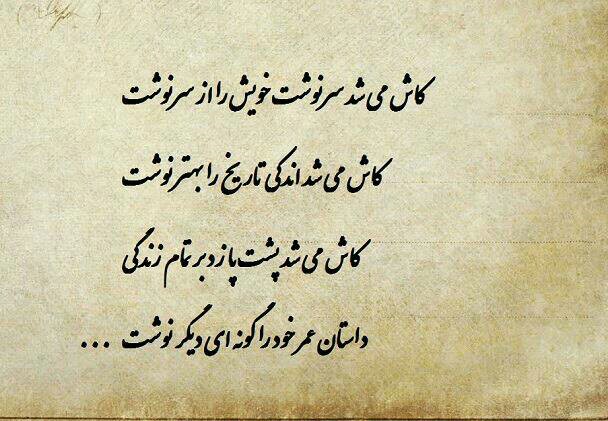 کاش می شد سرنوشت خویش را از سر نوشت
کاش می شد اندکی تاریخ را بهتر نوشت
کاش می شد پشت پا زد بر تمام زندگی
داستان عمر خود را گونه ای دیگر نوشت ...